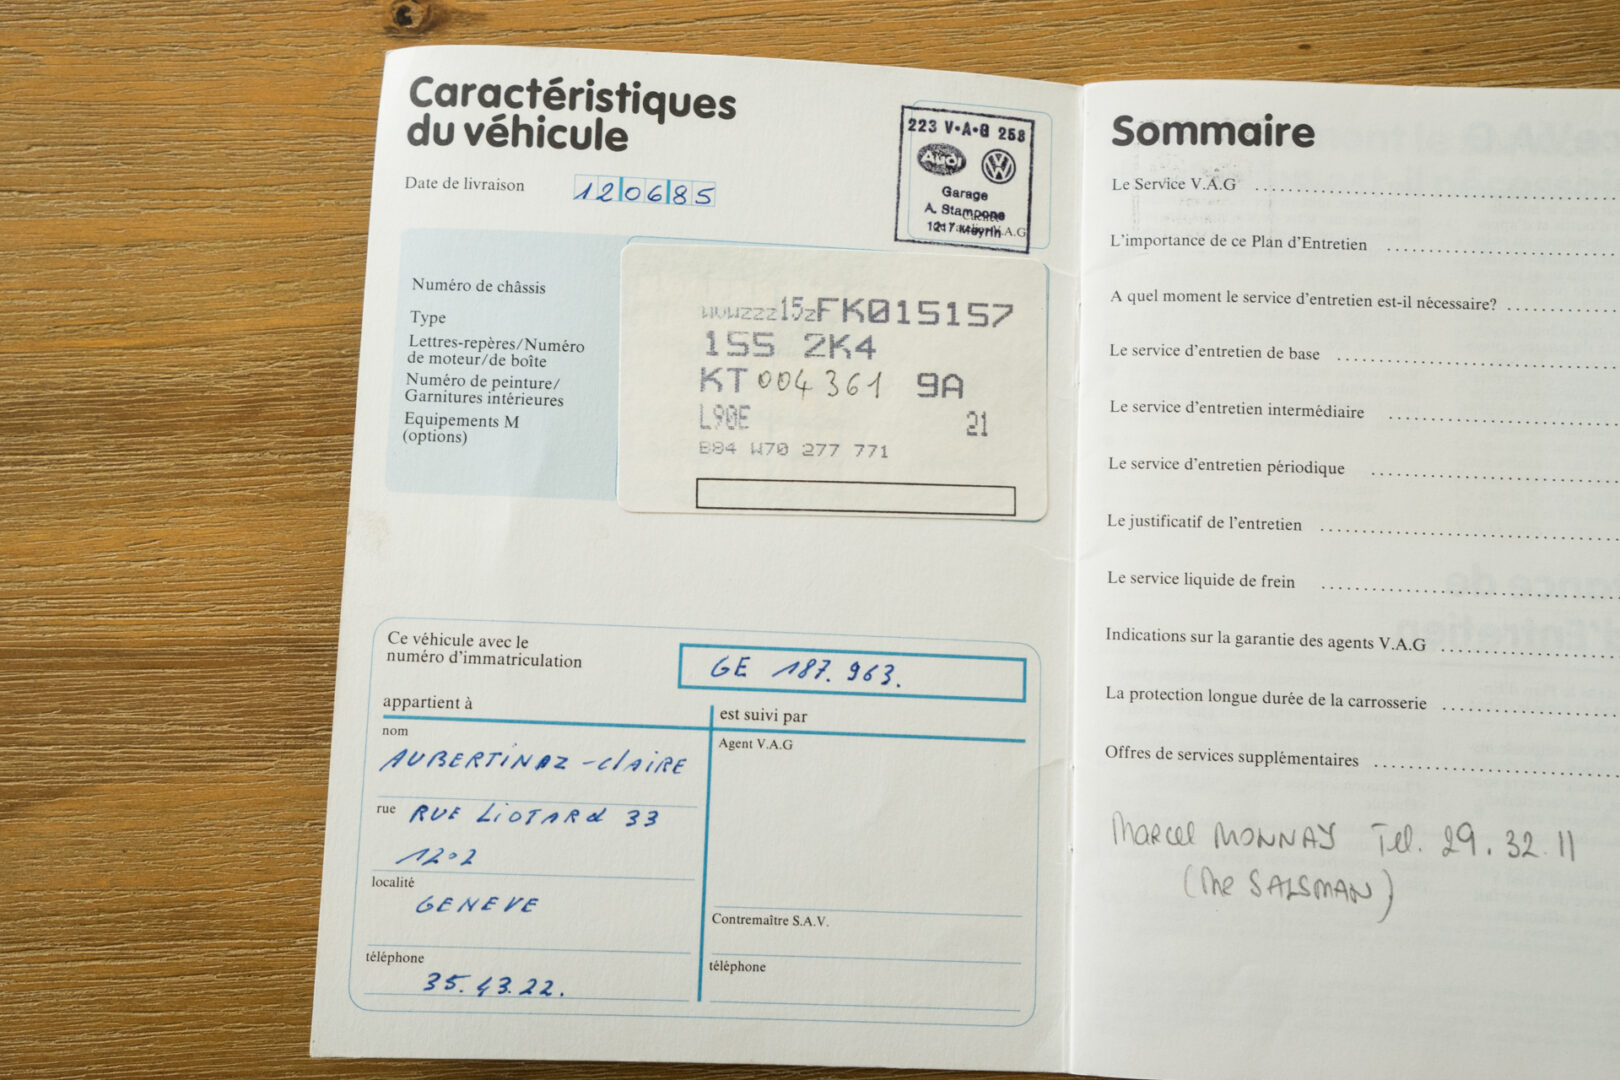 Caractéristiques
du véhicule
Date de livraison
120685
223 V·A·G 258
Audi
VW
Garage
A. Stampone
1217 Meyrin
V.A.G
Numéro de châssis
WVWZZZ15ZFK015157
Type
155 2K4
Lettres-repères/Numéro
de moteur/de boîte
KT 004361 9A
Numéro de peinture/
Garnitures intérieures
L90E 21
Equipements M
(options)
B84 W70 277 771
Ce véhicule avec le
numéro d'immatriculation
GE 187.963.
appartient à
est suivi par
nom
AUBERTINAZ-ClAIRE
Agent V.A.G
rue RUE LIOTARd 33
1202
localité
GENEVE
Contremaître S.A.V.
téléphone
35.43.22.
téléphone
Sommaire
Le Service V.A.G
L'importance de ce Plan d'Entretien
A quel moment le service d'entretien est-il nécessaire?
Le service d'entretien de base
Le service d'entretien intermédiaire
Le service d'entretien périodique
Le justificatif de l'entretien
Le service liquide de frein
Indications sur la garantie des agents V.A.G
La protection longue durée de la carrosserie
Offres de services supplémentaires
Marcel MONNAY Tel. 29.32.11
(Me SALSMAN)